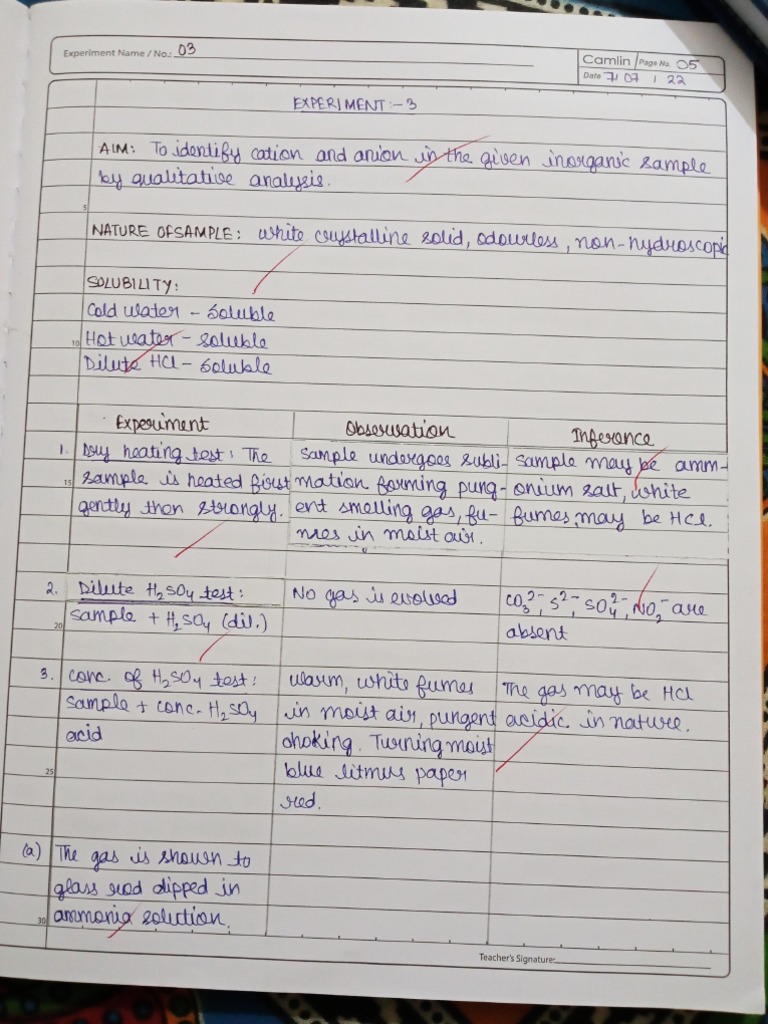 Experiment Name / No.: 03
Camlin Page No. 05
Date 7/ 07 / 22
EXPERIMENT:-3
AIM: To identify cation and anion in the given inorganic sample
by qualitative analysis.
5
NATURE OF SAMPLE: white crystalline solid, odourless, non-hydroscopic
SOLUBILITY:
Cold water - Soluble
10 Hot water - Soluble
Dilute HCl - Soluble
Experiment Observation Inference
1. Dry heating test: The sample undergoes subli- sample may be amm-
15 sample is heated first mation forming pung- onium salt, white
gently then strongly. ent smelling gas, fu- fumes, may be HCl.
mes in moist air.
2. Dilute H₂SO₄ test: No gas is evolved CO₃²⁻, S²⁻, SO₄²⁻, NO₂⁻ are
20 sample + H₂SO₄ (dil.) absent
3. conc. of H₂SO₄ test: warm, white fumes The gas may be HCl
sample + conc. H₂SO₄ in moist air, pungent acidic in nature.
acid choking. Turning moist
25 blue litmus paper
red.
(a) The gas is shown to
glass rod dipped in
30 ammonia solution.
Teacher's Signature: